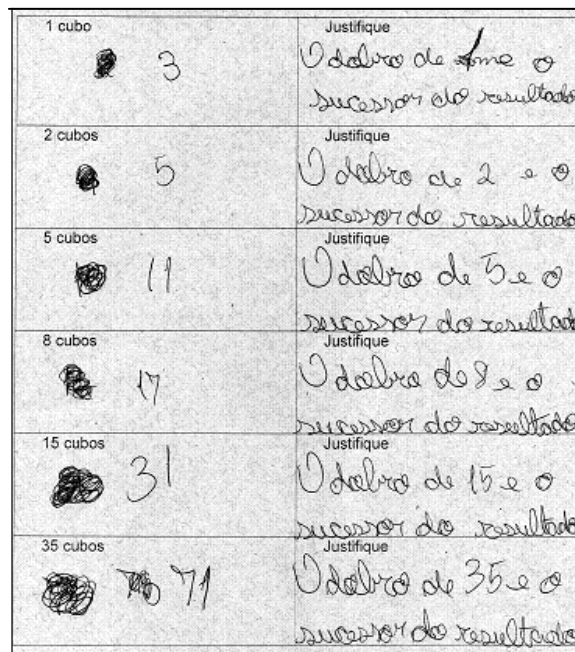 1 cubo
Justifique
3
O dobro de 1 me o
sucessor do resultado
2 cubos
Justifique
5
O dobro de 2 e o
sucessor do resultado
5 cubos
Justifique
11
O dobro de 5 e o
sucessor do resultado
8 cubos
Justifique
17
O dobro de 8 e o
sucessor do resultado
15 cubos
Justifique
31
O dobro de 15 e o
sucessor do resultado
35 cubos
Justifique
71
O dobro de 35 e o
sucessor do resultado